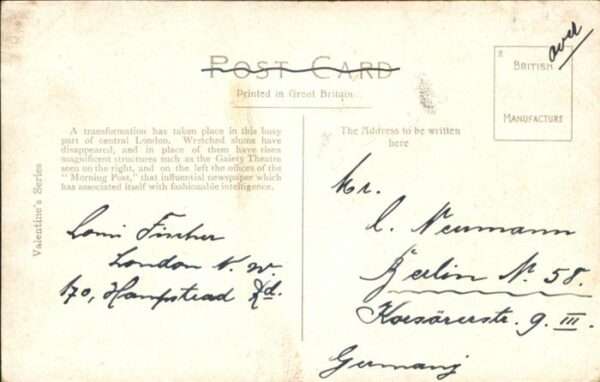 POST CARD
Printed in Great Britain.
over
BRITISH
MANUFACTURE
A transformation has taken place in this busy
part of central London. Wretched slums have
disappeared, and in place of them have risen
magnificent structures such as the Gaiety Theatre
seen on the right, and on the left the offices of the
"Morning Post," that influential newspaper which
has associated itself with fashionable intelligence.
The Address to be written
here
Valentine's Series
Fischer
London N. W.
170, Hampstead Rd.
Mr.
Neumann
Berlin N. 58.
Korsörerstr. 9. III.
Germany